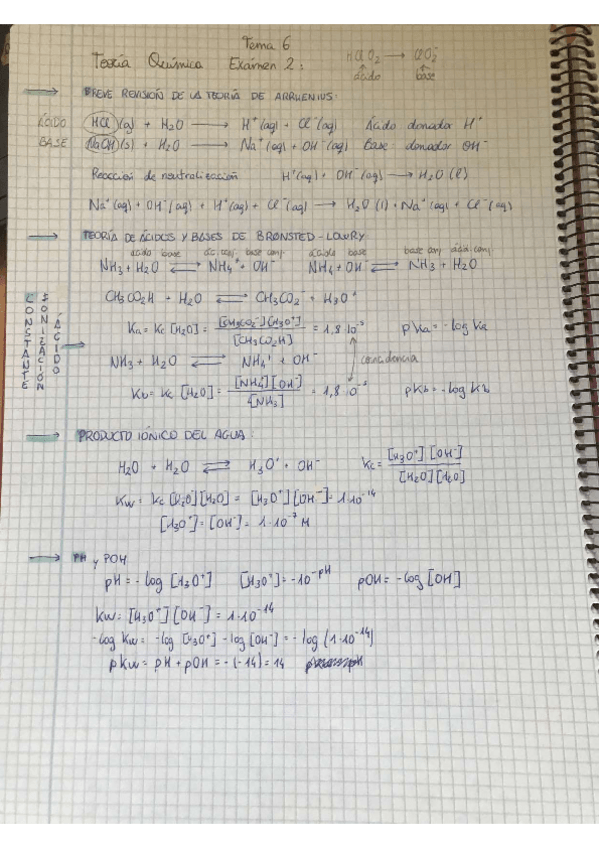 Tema 6
Teoría Química Examen 2: HClO2 → ClO2⁻
ácido base
BREVE REVISIÓN DE LA TEORÍA DE ARRHENIUS:
ÁCIDO HCl (g) + H2O → H⁺(aq) + Cl⁻(aq) Ácido donador H⁺
BASE NaOH(s) + H2O → Na⁺(aq) + OH⁻(aq) Base donador OH⁻
Reacción de neutralización H⁺(aq) + OH⁻(aq) → H2O (l)
Na⁺(aq) + OH⁻(aq) + H⁺(aq) + Cl⁻(aq) → H2O (l) + Na⁺(aq) + Cl⁻(aq)
TEORÍA DE ÁCIDOS Y BASES DE BRØNSTED-LOWRY
ácido base ác. conj. base conj. ácido base base conj ácid conj
NH3 + H2O ⇌ NH4⁺ + OH⁻ NH4 + OH⁻ ⇌ NH3 + H2O
CH3CO2H + H2O ⇌ CH3CO2 + H3O⁺
CONSTANTE IONIZACIÓN ÁCIDO
Ka = Kc [H2O] = [CH3CO2⁻][H3O⁺] / [CH3CO2H] = 1,8·10⁻⁵ pKa = -log Ka
NH3 + H2O ⇌ NH4⁺ + OH⁻ coincidencia
Kb = Kc [H2O] = [NH4][OH⁻] / [NH3] = 1,8·10⁻⁵ pKb = -log Kb
PRODUCTO IÓNICO DEL AGUA:
H2O + H2O ⇌ H3O⁺ + OH⁻ Kc = [H3O⁺][OH⁻] / [H2O][H2O]
Kw = Kc [H2O][H2O] = [H3O⁺][OH⁻] = 1·10⁻¹⁴
[H3O⁺] = [OH⁻] = 1·10⁻⁷ M
PH y POH
pH = -log [H3O⁺] [H3O⁺] = -10⁻ᵖᴴ pOH = -log [OH]
Kw = [H3O⁺][OH⁻] = 1·10⁻¹⁴
-log Kw = -log [H3O⁺] - log [OH⁻] = -log (1·10⁻¹⁴)
pKw = pH + pOH = -(-14) = 14